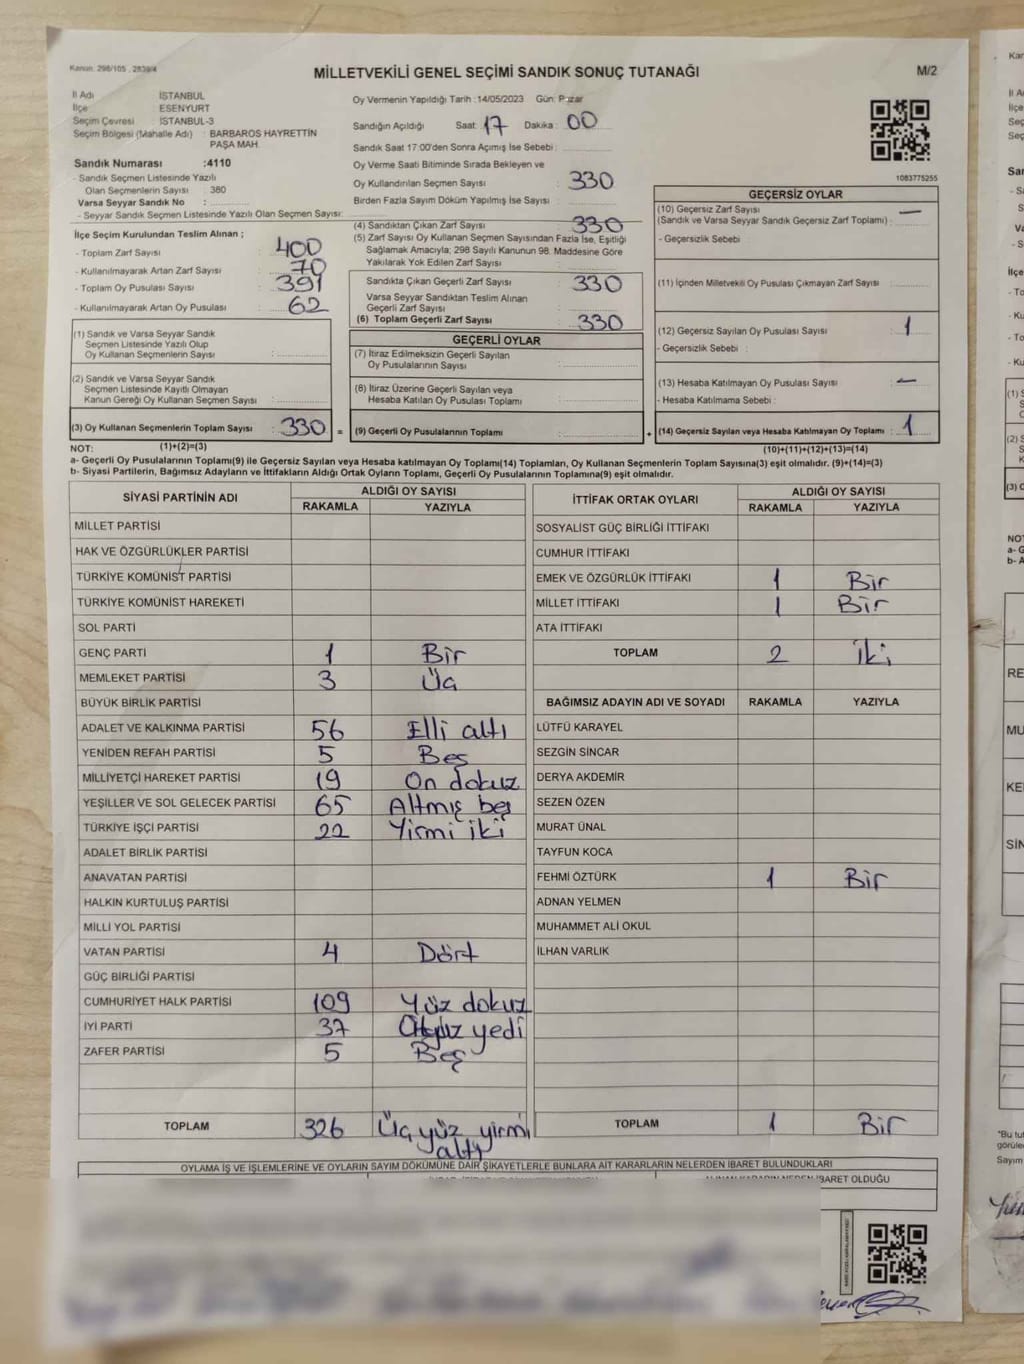 Kanun. 298/105 . 2839/4
MİLLETVEKİLİ GENEL SEÇİMİ SANDIK SONUÇ TUTANAĞI
M/2
İl Adı İSTANBUL
İlçe ESENYURT
Seçim Çevresi : İSTANBUL-3
Seçim Bölgesi (Mahalle Adı) : BARBAROS HAYRETTİN
PAŞA MAH.
Sandık Numarası :4110
- Sandık Seçmen Listesinde Yazılı
Olan Seçmenlerin Sayısı : 380
Varsa Seyyar Sandık No :
- Seyyar Sandık Seçmen Listesinde Yazılı Olan Seçmen Sayısı:
İlçe Seçim Kurulundan Teslim Alınan ;
- Toplam Zarf Sayısı : 400
- Kullanılmayarak Artan Zarf Sayısı : 70
- Toplam Oy Pusulası Sayısı : 391
- Kullanılmayarak Artan Oy Pusulası : 62
(1) Sandık ve Varsa Seyyar Sandık
Seçmen Listesinde Yazılı Olup
Oy Kullanan Seçmenlerin Sayısı :
(2) Sandık ve Varsa Seyyar Sandık
Seçmen Listesinde Kayıtlı Olmayan
Kanun Gereği Oy Kullanan Seçmen Sayısı :
(3) Oy Kullanan Seçmenlerin Toplam Sayısı : 330 =
Oy Vermenin Yapıldığı Tarih :14/05/2023 Gün: Pazar
Sandığın Açıldığı Saat: 17 Dakika : 00
Sandık Saat 17:00'den Sonra Açımış İse Sebebi :
Oy Verme Saati Bitiminde Sırada Bekleyen ve
Oy Kullandırılan Seçmen Sayısı : 330
Birden Fazla Sayım Döküm Yapılmış İse Sayısı :
(4) Sandıktan Çıkan Zarf Sayısı : 330
(5) Zarf Sayısı Oy Kullanan Seçmen Sayısından Fazla İse, Eşitliği
Sağlamak Amacıyla; 298 Sayılı Kanunun 98. Maddesine Göre
Yakılarak Yok Edilen Zarf Sayısı :
Sandıkta Çıkan Geçerli Zarf Sayısı : 330
Varsa Seyyar Sandıktan Teslim Alınan
Geçerli Zarf Sayısı
(6) Toplam Geçerli Zarf Sayısı : 330
GEÇERLİ OYLAR
(7) İtiraz Edilmeksizin Geçerli Sayılan
Oy Pusulalarının Sayısı :
(8) İtiraz Üzerine Geçerli Sayılan veya
Hesaba Katılan Oy Pusulası Toplamı :
(9) Geçerli Oy Pusulalarının Toplamı : +
1083775255
GEÇERSİZ OYLAR
(10) Geçersiz Zarf Sayısı —
(Sandık ve Varsa Seyyar Sandık Geçersiz Zarf Toplamı) :
- Geçersizlik Sebebi
(11) İçinden Milletvekili Oy Pusulası Çıkmayan Zarf Sayısı :
(12) Geçersiz Sayılan Oy Pusulası Sayısı : 1
- Geçersizlik Sebebi :
(13) Hesaba Katılmayan Oy Pusulası Sayısı : —
- Hesaba Katılmama Sebebi :
(14) Geçersiz Sayılan veya Hesaba Katılmayan Oy Toplamı : 1
NOT: (1)+(2)=(3) (10)+(11)+(12)+(13)=(14)
a- Geçerli Oy Pusulalarının Toplamı(9) ile Geçersiz Sayılan veya Hesaba katılmayan Oy Toplamı(14) Toplamları, Oy Kullanan Seçmenlerin Toplam Sayısına(3) eşit olmalıdır. (9)+(14)=(3)
b- Siyasi Partilerin, Bağımsız Adayların ve İttifakların Aldığı Ortak Oyların Toplamı, Geçerli Oy Pusulalarının Toplamına(9) eşit olmalıdır.
SİYASİ PARTİNİN ADI ALDIĞI OY SAYISI
RAKAMLA YAZIYLA
MİLLET PARTİSİ
HAK VE ÖZGÜRLÜKLER PARTİSİ
TÜRKİYE KOMÜNİST PARTİSİ
TÜRKİYE KOMÜNİST HAREKETİ
SOL PARTİ
GENÇ PARTİ 1 Bir
MEMLEKET PARTİSİ 3 Üç
BÜYÜK BİRLİK PARTİSİ
ADALET VE KALKINMA PARTİSİ 56 Elli altı
YENİDEN REFAH PARTİSİ 5 Beş
MİLLİYETÇİ HAREKET PARTİSİ 19 On dokuz
YEŞİLLER VE SOL GELECEK PARTİSİ 65 Altmış beş
TÜRKİYE İŞÇİ PARTİSİ 22 Yirmi iki
ADALET BİRLİK PARTİSİ
ANAVATAN PARTİSİ
HALKIN KURTULUŞ PARTİSİ
MİLLİ YOL PARTİSİ
VATAN PARTİSİ 4 Dört
GÜÇ BİRLİĞİ PARTİSİ
CUMHURİYET HALK PARTİSİ 109 Yüz dokuz
İYİ PARTİ 37 Otuz yedi
ZAFER PARTİSİ 5 Beş
TOPLAM 326 Üç yüz yirmi
altı
İTTİFAK ORTAK OYLARI ALDIĞI OY SAYISI
RAKAMLA YAZIYLA
SOSYALİST GÜÇ BİRLİĞİ İTTİFAKI
CUMHUR İTTİFAKI
EMEK VE ÖZGÜRLÜK İTTİFAKI 1 Bir
MİLLET İTTİFAKI 1 Bir
ATA İTTİFAKI
TOPLAM 2 İki
BAĞIMSIZ ADAYIN ADI VE SOYADI RAKAMLA YAZIYLA
LÜTFÜ KARAYEL
SEZGİN SİNCAR
DERYA AKDEMİR
SEZEN ÖZEN
MURAT ÜNAL
TAYFUN KOCA
FEHMİ ÖZTÜRK 1 Bir
ADNAN YELMEN
MUHAMMET ALİ OKUL
İLHAN VARLIK
TOPLAM 1 Bir
OYLAMA İŞ VE İŞLEMLERİNE VE OYLARIN SAYIM DÖKÜMÜNE DAİR ŞİKAYETLERLE BUNLARA AİT KARARLARIN NELERDEN İBARET BULUNDUKLARI